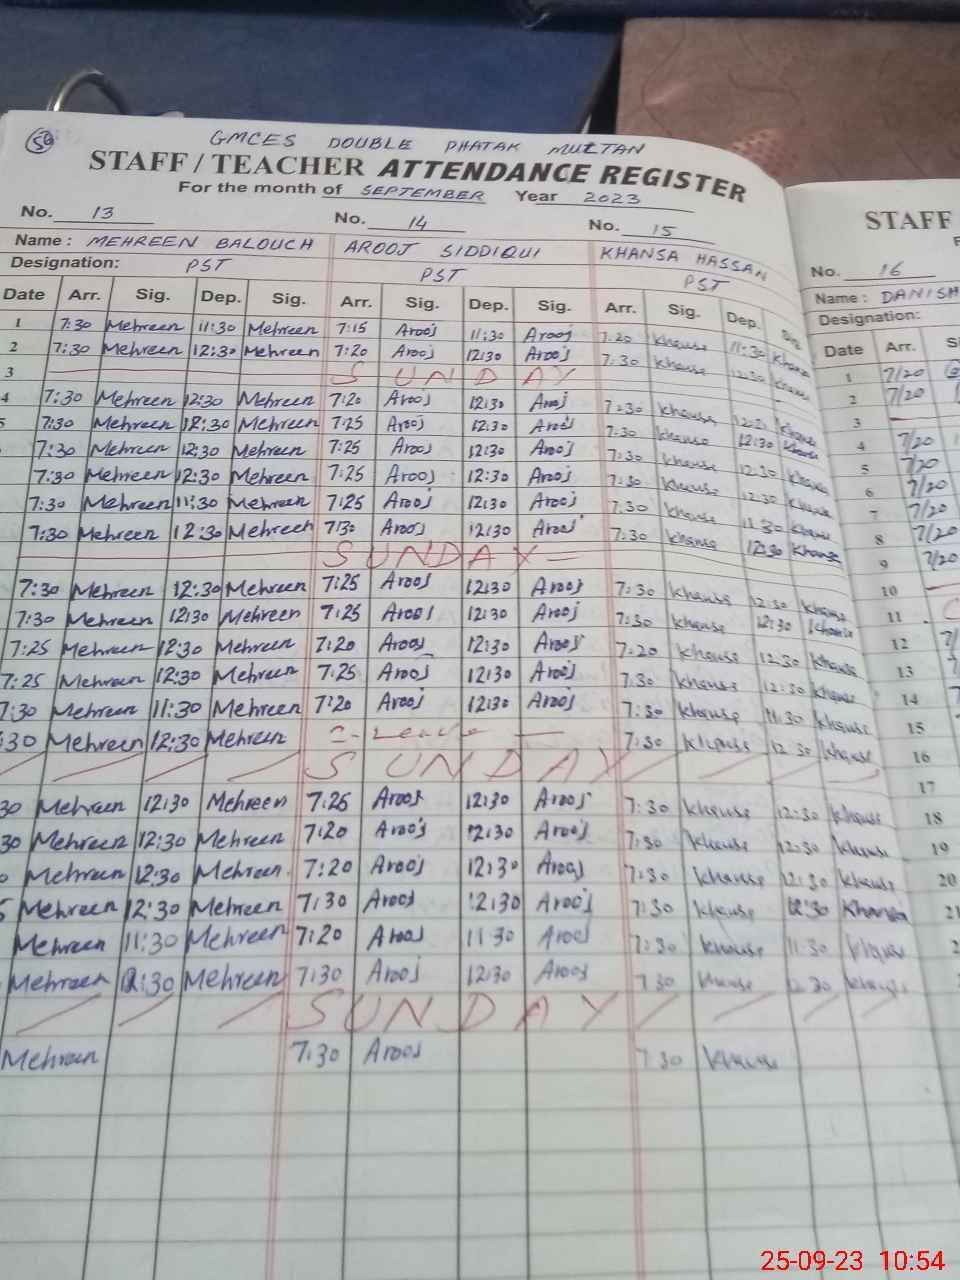 50
GMCES DOUBLE PHATAK MULTAN
STAFF / TEACHER ATTENDANCE REGISTER
For the month of SEPTEMBER Year 2023
No. 13 No. 14 No. 15
Name : MEHREEN BALOUCH AROOJ SIDDIQUI KHANSA HASSAN
Designation: PST PST PST
Date Arr. Sig. Dep. Sig. Arr. Sig. Dep. Sig. Arr. Sig. Dep.
1 7:30 Mehreen 11:30 Mehreen 7:15 Arooj 11:30 Arooj 7:20 Khansa 11:30 Khansa
2 7:30 Mehreen 12:30 Mehreen 7:20 Arooj 12:30 Arooj 7:30 Khansa 12:30 Khansa
3 SUNDAY
4 7:30 Mehreen 12:30 Mehreen 7:20 Arooj 12:30 Arooj 7:30 Khansa Khansa
5 7:30 Mehreen 12:30 Mehreen 7:25 Arooj 12:30 Arooj 7:30 Khansa 12:30 Khansa
7:30 Mehreen 12:30 Mehreen 7:25 Arooj 12:30 Arooj 7:30 Khansa 12:30 Khansa
7:30 Mehreen 12:30 Mehreen 7:25 Arooj 12:30 Arooj 7:30 Khansa 12:30 Khansa
7:30 Mehreen 11:30 Mehreen 7:25 Arooj 12:30 Arooj 7:30 Khansa 11:30 Khansa
7:30 Mehreen 12:30 Mehreen 730 Arooj 12:30 Arooj 7:30 Khansa 12:30 Khansa
SUNDAY
7:30 Mehreen 12:30 Mehreen 7:25 Arooj 12:30 Arooj 7:30 Khansa 12:30 Khansa
7:30 Mehreen 12:30 Mehreen 7:25 Arooj 12:30 Arooj 7:30 Khansa 12:30 Khansa
7:25 Mehreen 12:30 Mehreen 7:20 Arooj 12:30 Arooj 7:20 Khansa 12:30 Khansa
7:25 Mehreen 12:30 Mehreen 7:25 Arooj 12:30 Arooj 7:30 Khansa 12:30 Khansa
7:30 Mehreen 11:30 Mehreen 7:20 Arooj 12:30 Arooj 7:30 Khansa 11:30 Khansa
:30 Mehreen 12:30 Mehreen Leave 7:30 Khansa 12:30 Khansa
SUNDAY
30 Mehreen 12:30 Mehreen 7:25 Arooj 12:30 Arooj 7:30 Khansa 12:30 Khansa
30 Mehreen 12:30 Mehreen 7:20 Arooj 12:30 Arooj 7:30 Khansa 12:30 Khansa
Mehreen 12:30 Mehreen 7:20 Arooj 12:30 Arooj 7:30 Khansa 12:30 Khansa
5 Mehreen 12:30 Mehreen 7:30 Arooj 12:30 Arooj 7:30 Khansa 12:30 Khansa
Mehreen 11:30 Mehreen 7:20 Arooj 11 30 Arooj 7:30 Khansa 11:30 Khansa
Mehreen 12:30 Mehreen 7:30 Arooj 12:30 Arooj 7:30 Khansa 12:30 Khansa
SUNDAY
Mehreen 7:30 Arooj 7:30 Khansa
STAFF
No. 16
Name : DANISH
Designation:
Date Arr.
1 7/20
2 7/20
3
4 7/20
5 7/20
6 7/20
7 7/20
8 7/20
9 7/20
10
11
12
13
14
15
16
17
18
19
20
21
25-09-23 10:54